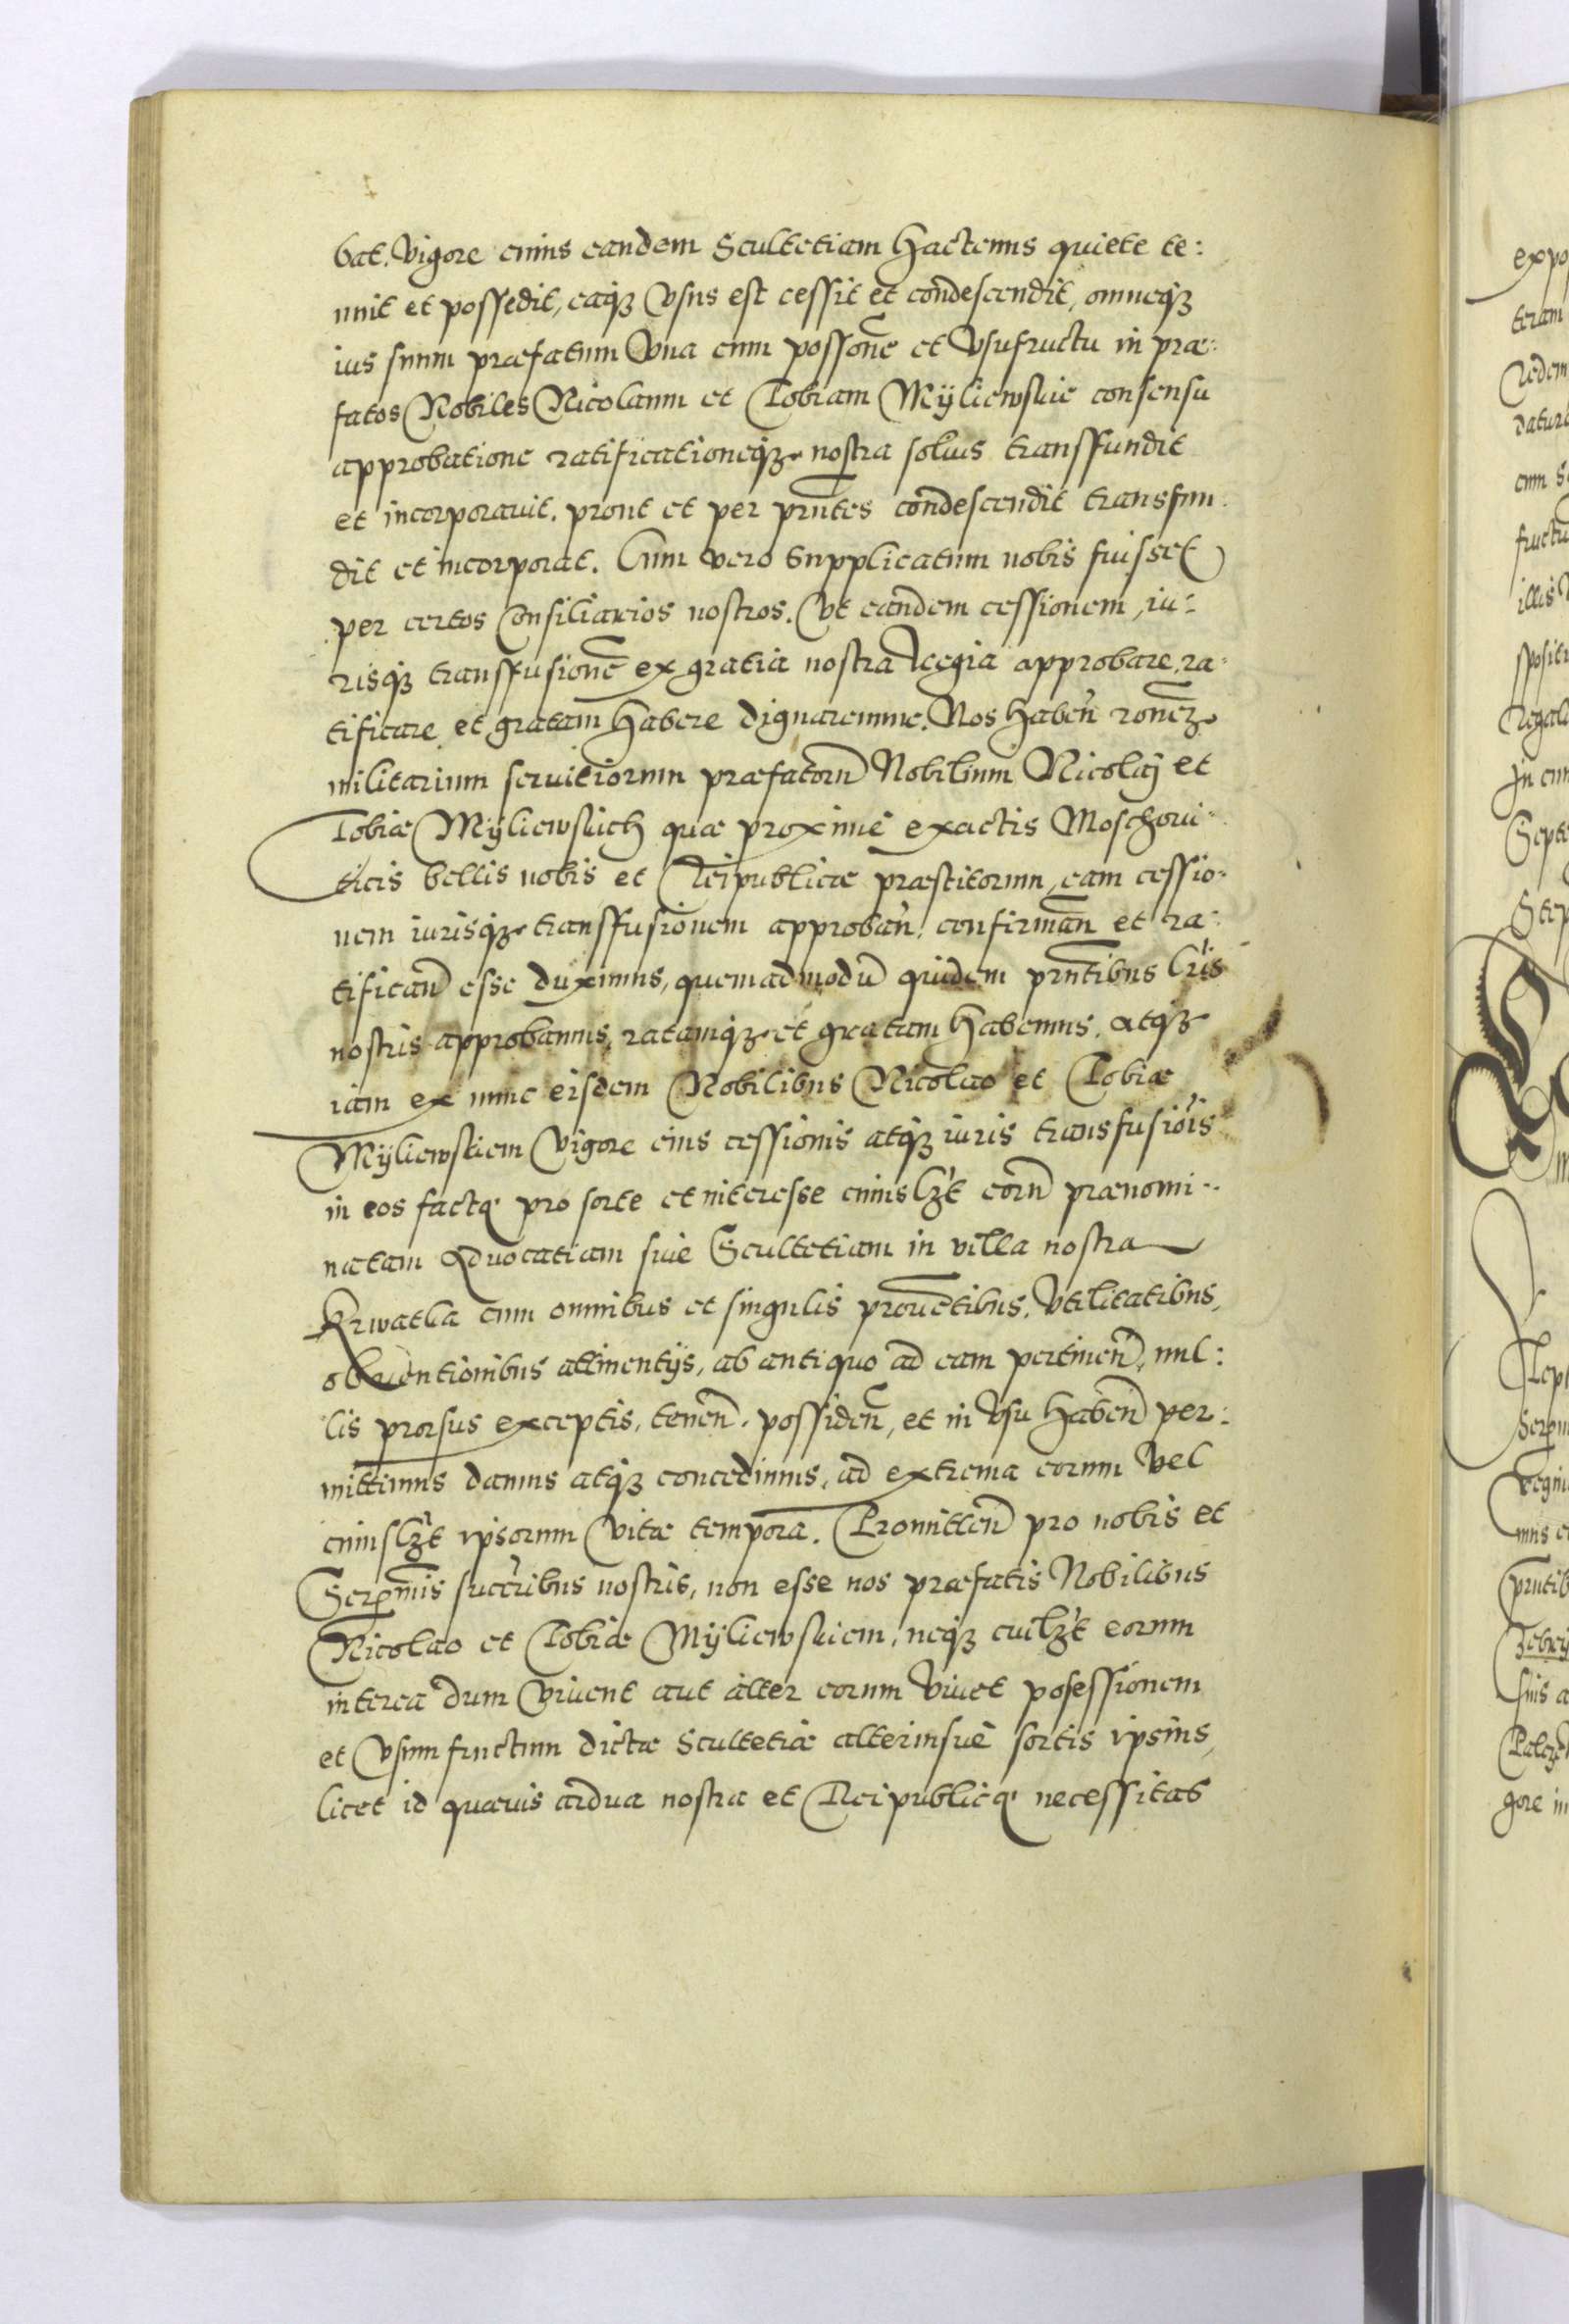 bat. Vigore cuius eandem Scultetiam hactenus quiete te:
nuit et possedit, eaq₃ Vsus est cessit et condescendit, omneq₃
ius suum præfatum Vna cum possone̅ et Vsufructu in præ:
fatos Nobiles Nicolaum et Tobiam Mÿliewskie consensu
approbatione ratificationeq₃ nostra soluis transffundit
et incorporauit. prout et per pnte̅s condescendit transfun.
dit et incorporat. Cum vero supplicatum nobis fuisset
per certos Consiliarios nostros. Vt eandem cessionem, iu:
risq₃ transfusione̅ ex gratia nostra Regia approbare, ra:
tificare et gratam habere dignaremur. Nos haben̅ rone̅₃
militarium seruitiorum præfatoru̅ Nobilium Nicolaj et
Tobiæ Mÿliewskich quæ proximè exactis Moschoui:
ticis bellis nobis et Reipublicæ præstitorum, eam cessio:
nem iurisq₃ transffusionem approban̅, confirman̅ et ra:
tifican̅ esse duximus, quemadmodu̅ quidem prn̅tibus lr̅is
nostris approbamus, ratamq₃ et gratam habemus. atq₃
iam ex nunc eisdem Nobilibus Nicolao et Tobiæ
Mÿliewskiem Vigore eius cessionis atq₃ iuris transfusiois
in eos factę pro sorte et interesse cuiusl₃t eoru̅ prænomi:
natam Aduocatiam siue Scultetiam in villa nostra
Krwatka cum omnibus et singulis prouētibus, Vtilitatibus,
obuentionibus attinentijs, ab antiquo ad eam pertinen̅, nul:
lis prorsus exceptis, tenen̅. possiden̅, et in Vsu haben̅ per:
mittimus damus atq₃ concedimus, ad extrema eorum Vel
cuiusl₃t ipsorum Vitæ tempora. Promitten̅ pro nobis et
Serenmis succribus nostris, non esse nos præfatis Nobilibus
Nicolao et Tobiæ Mÿliewskiem, neq₃ cuil₃t eorum
interea dum Viuent aut alter eorum Viuet posessionem
et Vsumfructum dictæ Scultetiæ alteriusuè sortis ipsius,
licet id quæuis ardua nostra et Reipublicę necessitas